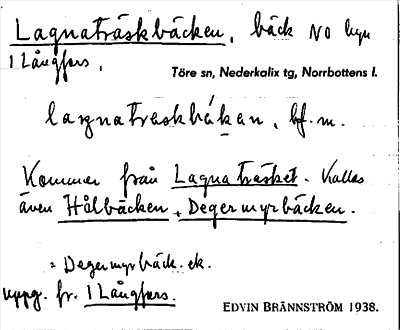 Lagnaträskbäcken, bäck NO byn
1 Långfors.
Töre sn, Nederkalix tg, Norrbottens l.
lagnatraskbäkan, bf. m.
Kommer från Lagnaträsket. Kallas
även Hålbäcken, Degermyrbäcken.
= Degermyrbäck. ek.
uppg. fr. 1 Långfors.
EDVIN BRÄNNSTRÖM 1938.